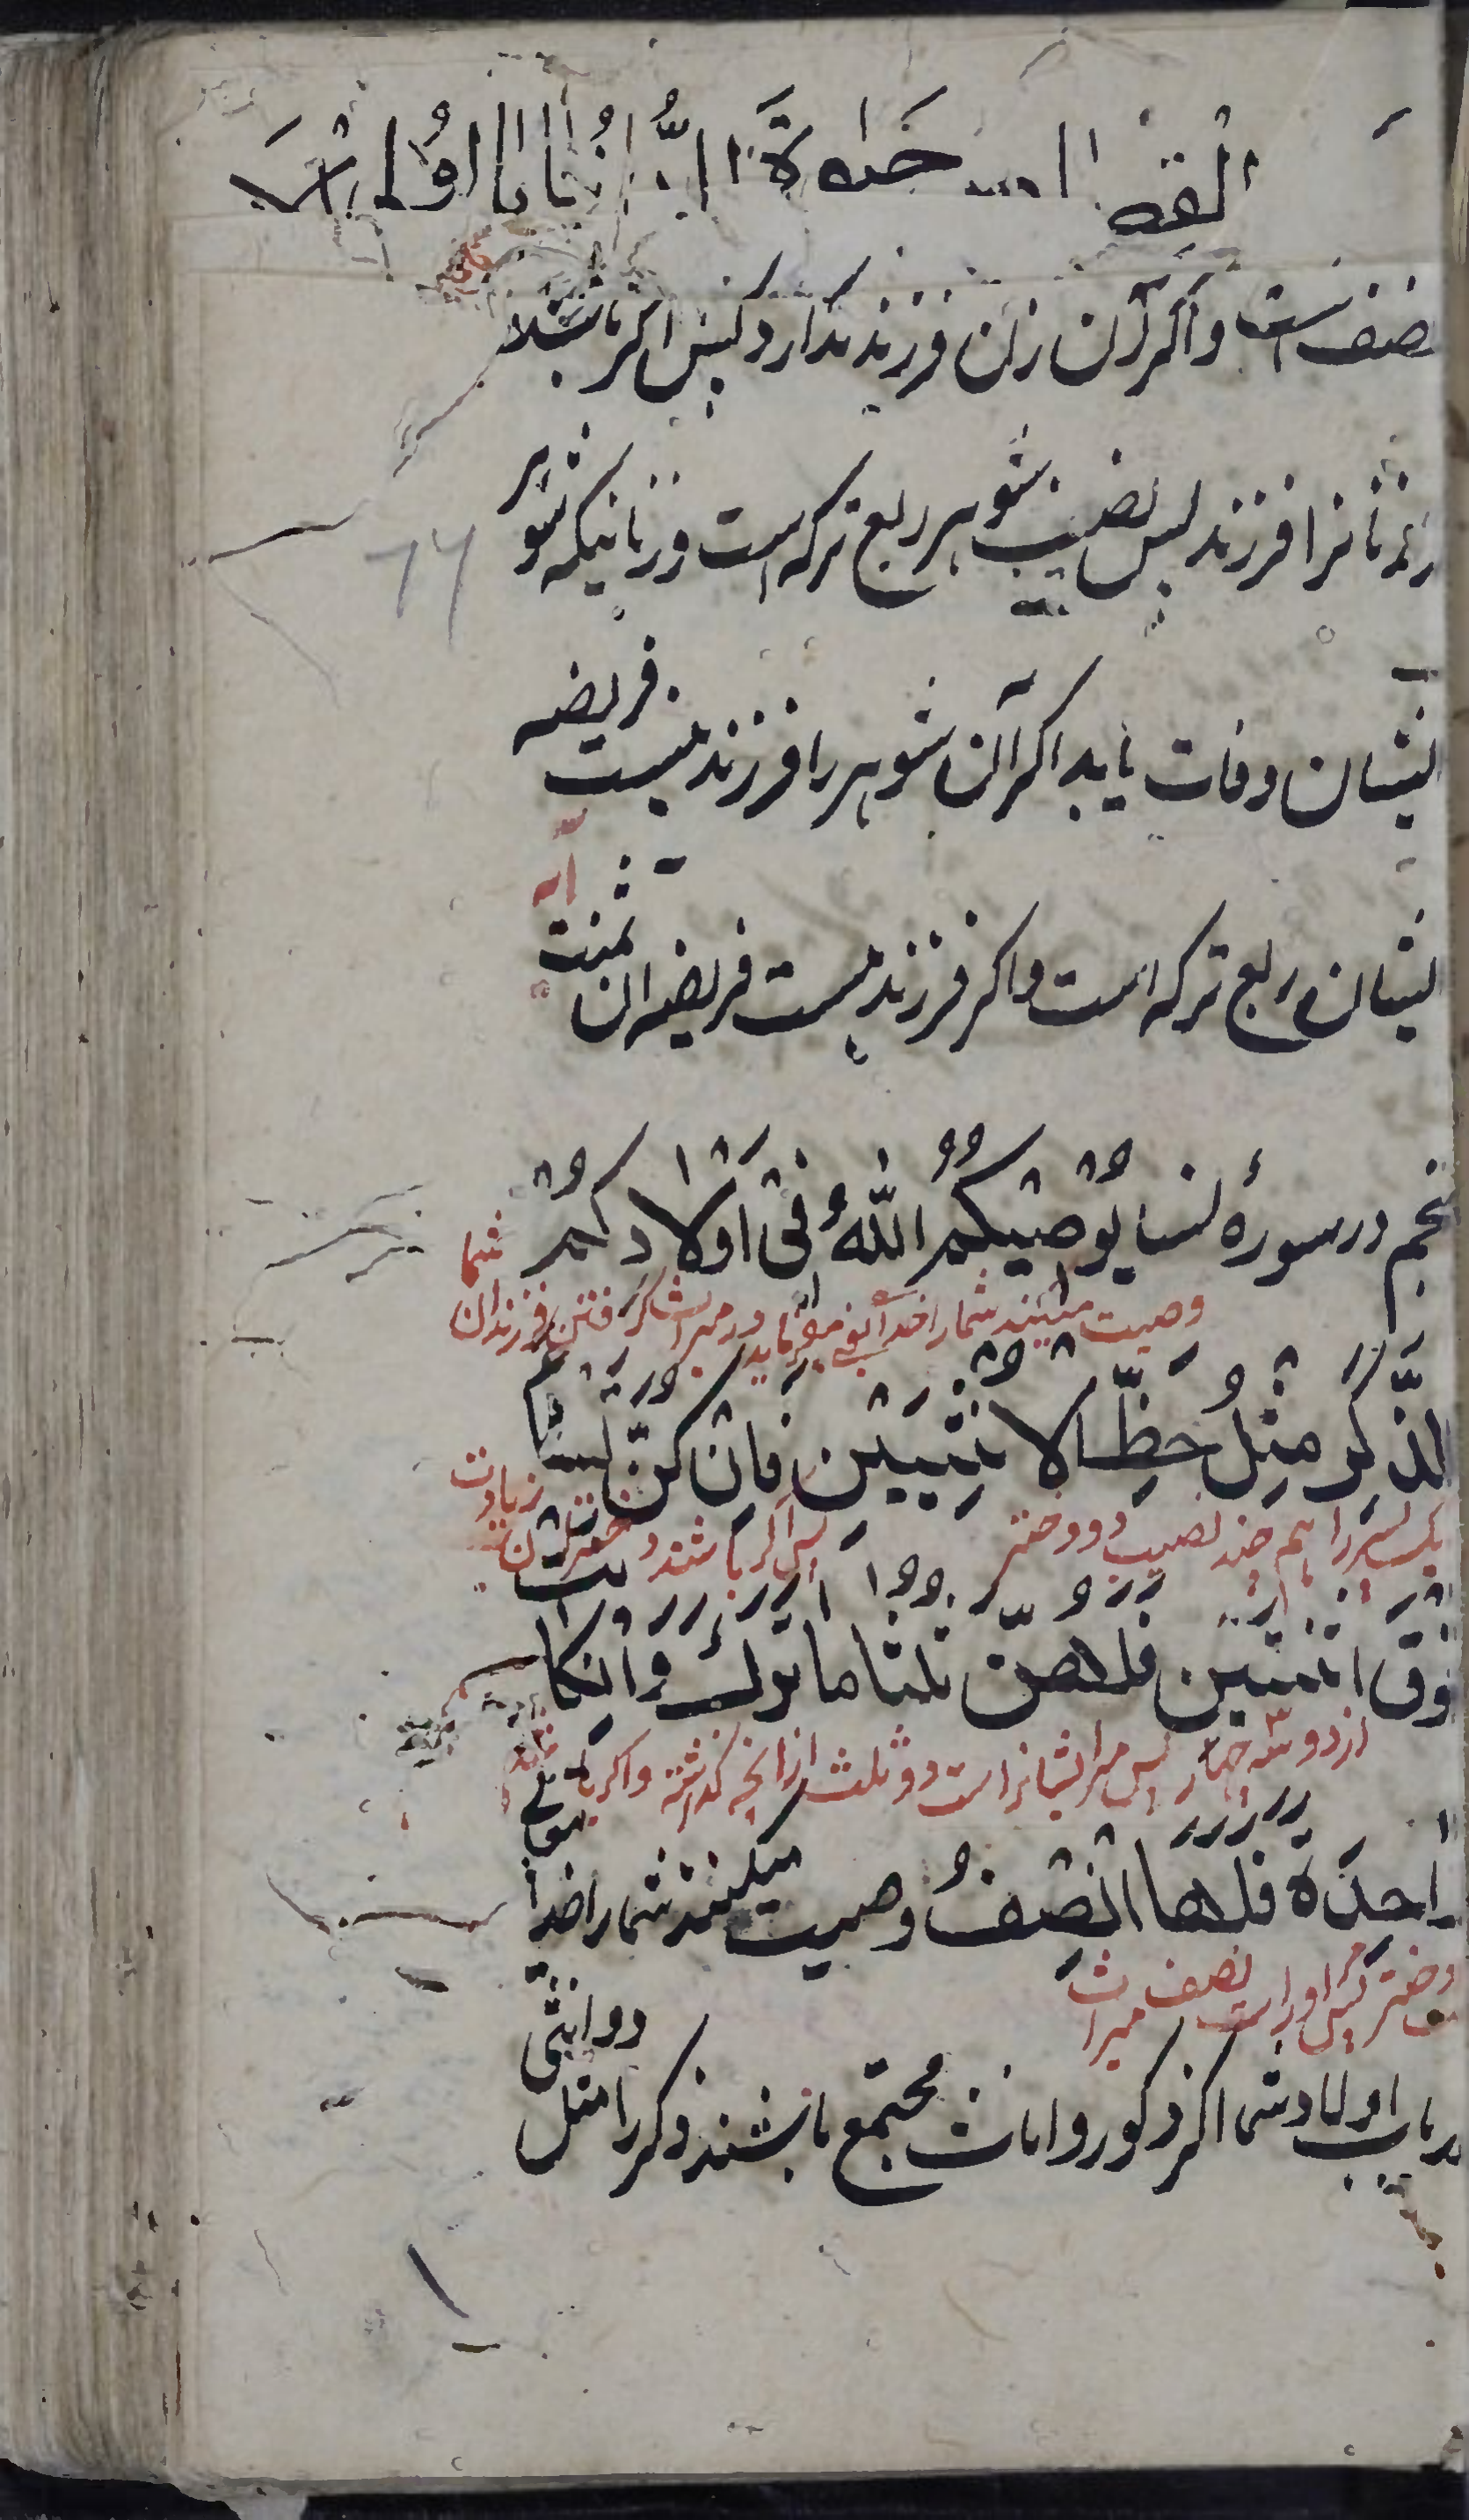 نصف است و اکر آن زن فرزند ندارد پس اکر باشند
زنانرا فرزند پس نصیب شوهر ربع ترکه است و زنانیکه شوهر
ایشان وفات یابد اکر آن شوهر را فرزند نیست فریضه
ایشان ربع ترکه است و اکر فرزند هست فریضه ان ثمنت
نجم در سورهٔ نسا یُوْصِیْکُمُ اللّٰهُ فِیْ اَوْلَادِکُمْ
وصیت میکند شما را خدا یعنی میفرماید در میراث کرفتن فرزندان شما
لِلذَّکَرِ مِثْلُ حَظِّ الْاُنْثَیَیْنِ فَاِنْ کُنَّ نِسَآءً
یک پسر را هم چند نصیب دو دختر پس اکر باشند دختران زیادت
فَوْقَ اثْنَتَیْنِ فَلَهُنَّ ثُلُثَا مَا تَرَکَ وَاِنْ کَانَتْ
از دو سه چهار پس مر ایشانراست دو ثلث از انچه کذاشته و اکر باشد
وَاحِدَةً فَلَهَا النِّصْفُ وصیت میکند شما را خدا
دختر پس مر او راست نصف میراث
در باب اولاد شما اکر ذکور و اناث مجتمع باشند ذکر را مثل دو انثی